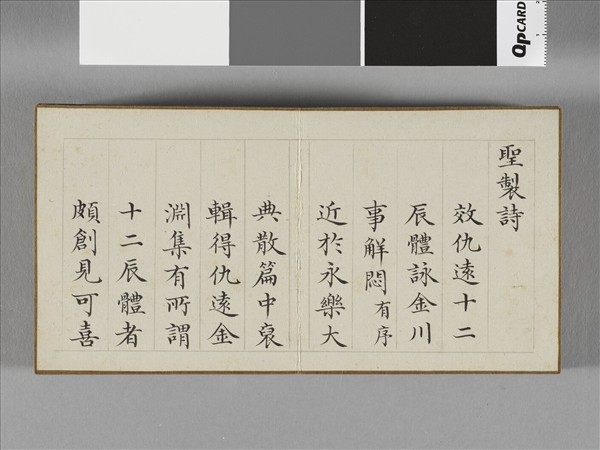 聖製詩
效仇遠十二
辰體詠金川
事解悶有序
近於永樂大
典散篇中裒
輯得仇遠金
淵集有所謂
十二辰體者
頗創見可喜
QPCARD